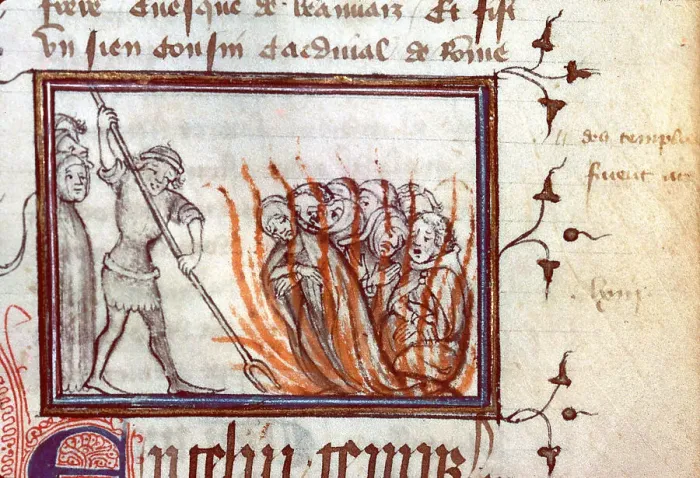 frere Euesque de beauuaiz Et fist
Vn sien Cousin Cardinal de Rome
des templ
furent ar
En celui temps